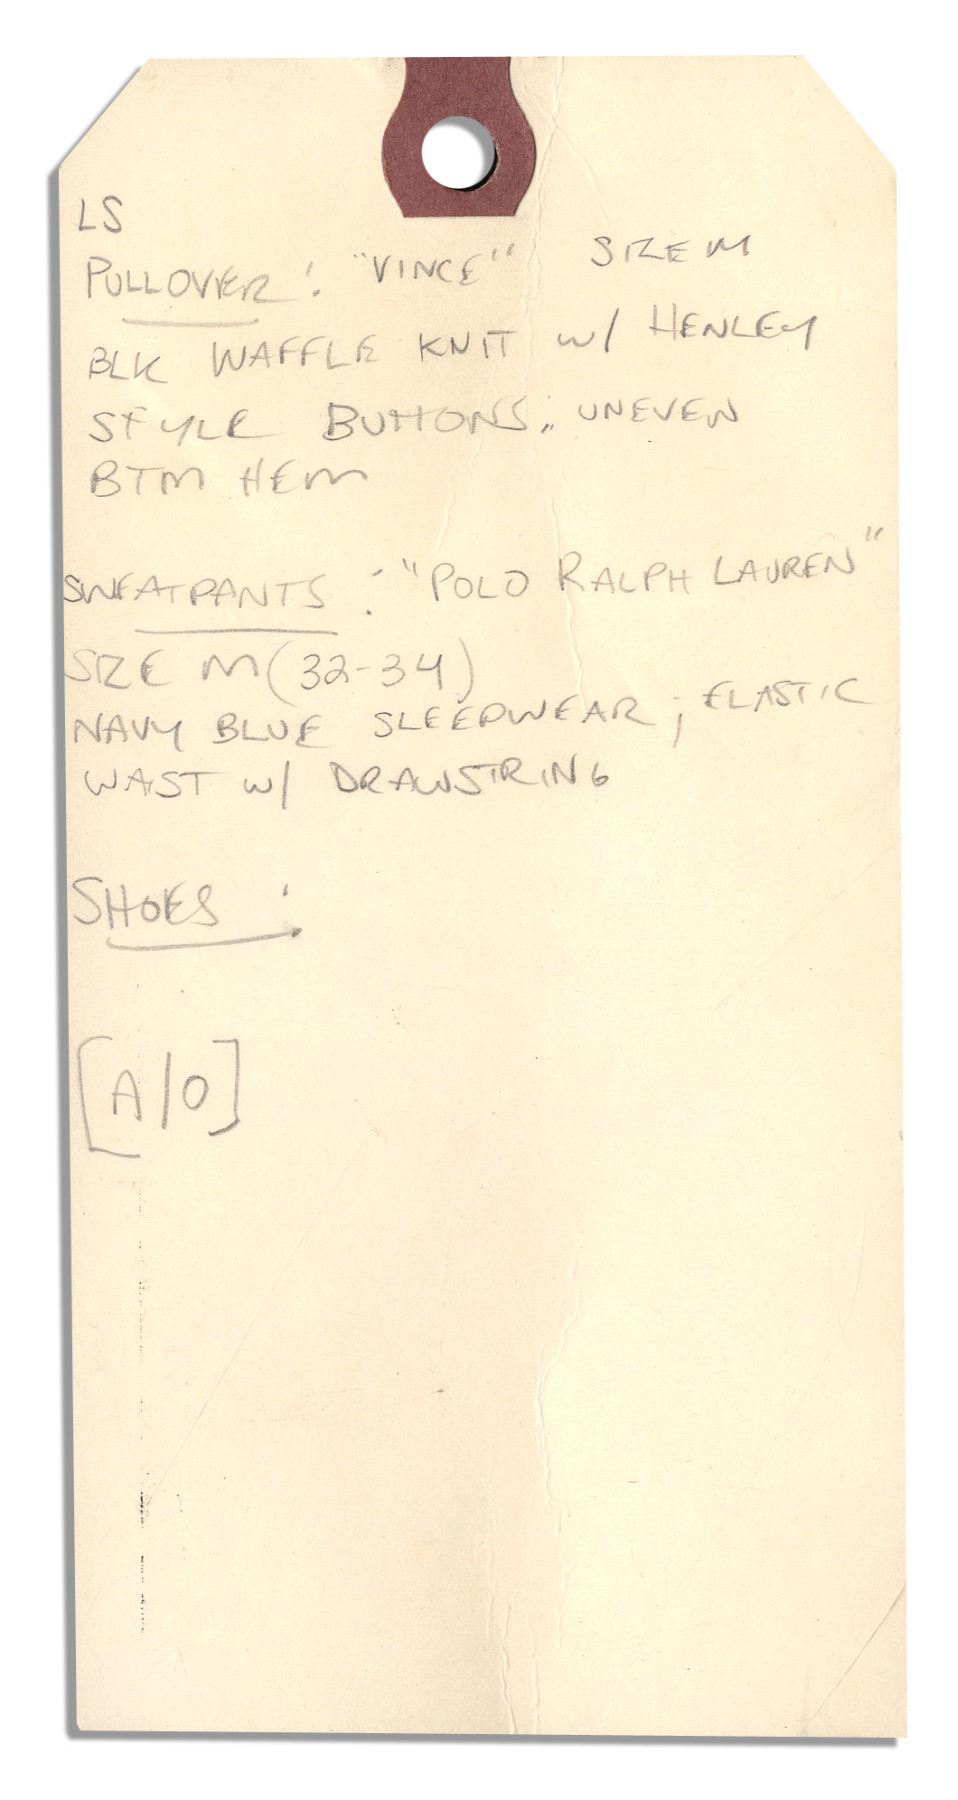 LS
PULLOVER: "VINCE" SIZE M
BLK WAFFLE KNIT w/ HENLEY
STYLE BUTTONS; UNEVEN
BTM HEM
SWEATPANTS: "POLO RALPH LAUREN"
SIZE M (32-34)
NAVY BLUE SLEEPWEAR; ELASTIC
WAIST w/ DRAWSTRING
SHOES:
[A/O]